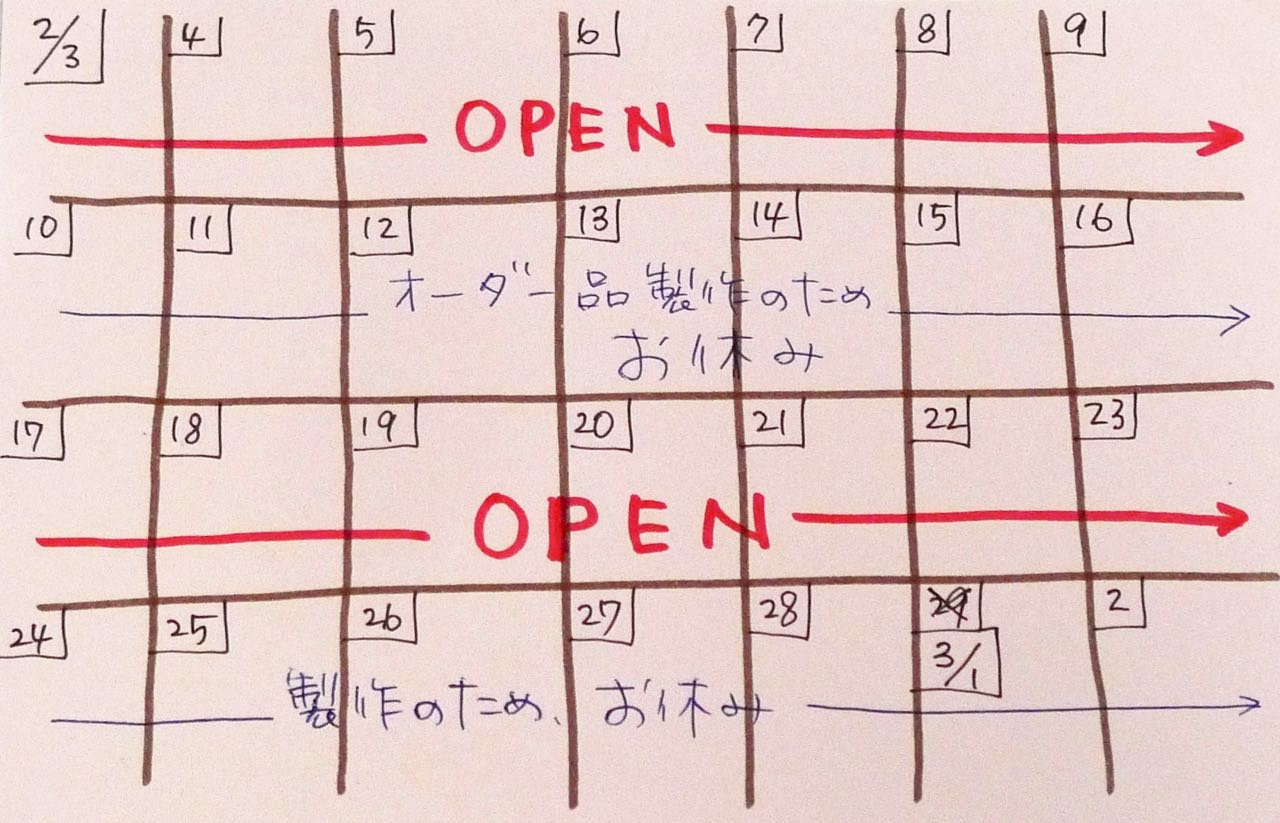 2/3 4 5 6 7 8 9
OPEN
10 11 12 13 14 15 16
オーダー品製作のため
お休み
17 18 19 20 21 22 23
OPEN
24 25 26 27 28 29 2
3/1
製作のため、お休み